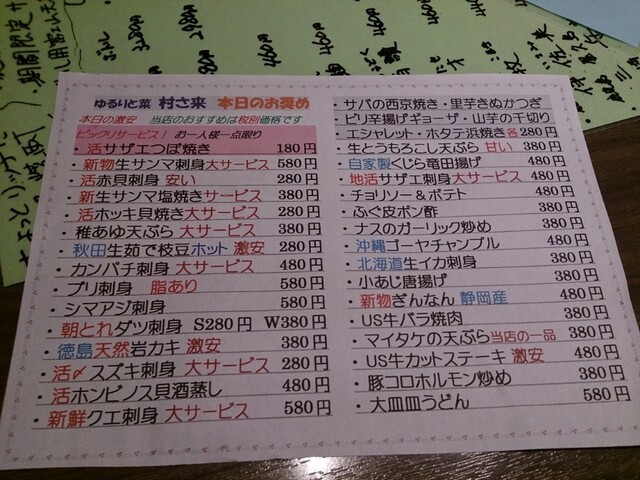 ゆるりと菜 村さ来 本日のお奨め
本日の激安 当店のおすすめは税別価格です
ビックリサービス! お一人様一点限り
・活サザエつぼ焼き 180円
・新物生サンマ刺身大サービス 580円
・活赤貝刺身 安い 280円
・新生サンマ塩焼きサービス 380円
・活ホッキ貝焼き大サービス 280円
・稚あゆ天ぷら 大サービス 380円
・秋田生茹で枝豆ホット 激安 280円
・カンパチ刺身 大サービス 480円
・ブリ刺身 脂あり 580円
・シマアジ刺身 580円
・朝とれダツ刺身 S280円 W380円
・徳島天然岩カキ 激安 380円
・活〆スズキ刺身 大サービス 280円
・活ホンビノス貝酒蒸し 480円
・新鮮クエ刺身 大サービス 580円
・サバの西京焼き・里芋きぬかつぎ
・ピリ辛揚げギョーザ・山芋の千切り
・エシャレット・ホタテ浜焼き各280円
・生とうもろこし天ぷら 甘い 380円
・自家製くじら竜田揚げ 480円
・地活サザエ刺身大サービス 480円
・チョリソー&ポテト 480円
・ふぐ皮ポン酢 380円
・ナスのガーリック炒め 380円
・沖縄ゴーヤチャンプル 480円
・北海道生イカ刺身 380円
・小あじ唐揚げ 380円
・新物ぎんなん 静岡産 480円
・US牛バラ焼肉 380円
・マイタケの天ぷら当店の一品 380円
・US牛カットステーキ 激安 480円
・豚コロホルモン炒め 380円
・大皿皿うどん 580円